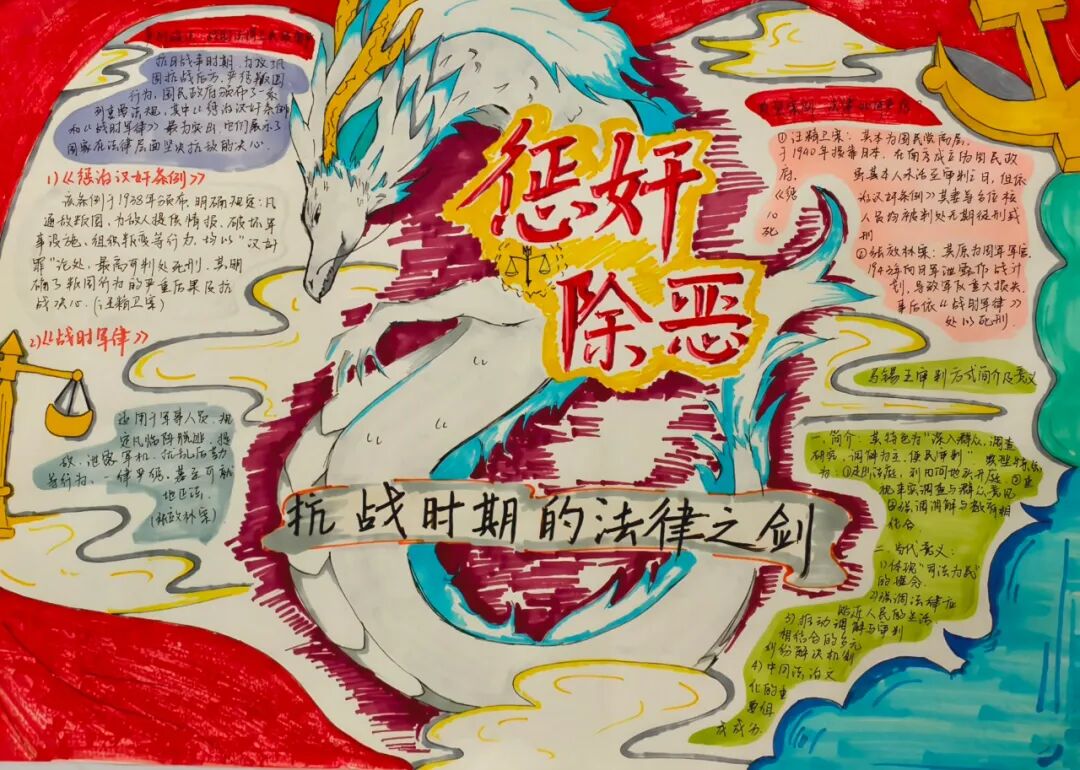 抗日战争时期,为巩
固抗战后方,严惩叛国
行为,国民政府颁布了一系
列重要法规,其中《惩治汉奸条例》
和《战时军律》最为突出,它们展示了
国家在法律层面坚决抗敌的决心.
1)《惩治汉奸条例》
该条例于1938年颁布,明确规定:凡
通敌叛国,为敌人提供情报、破坏军
事设施、组织叛变等行为,均以“汉奸
罪”论处,最高可判处死刑.其明
确了叛国行为的严重后果及抗
战决心.(汪精卫案)
2)《战时军律》
适用于军事人员,规
定凡临阵脱逃、投
敌、泄露军机、扰乱后勤
等行为,一律严惩,甚至可就
地正法.
(张敬林案)
惩奸
除恶
抗战时期的法律之剑
①汪精卫案:其本为国民党高层,
于1940年投靠日本,在南京成立伪国民政
府.虽其本人未活至审判之日,但依
《惩治汉奸条例》其妻与多位核
人员均被判处无期徒刑或
死刑
②张敬林案:其原为国军军官,
1943年向日军泄露作战计
划,导致军队重大损失.
事后依《战时军律》
处以死刑.
马锡五审判方式简介及意义
一、简介:其特色为“深入群众,调查
研究,调解为主,便民审判”
为:①走出法庭,到田间地头开庭 ②重
视来源调查与群众意见
③强调调解与教育相
结合
二、当代意义:
1)体现“司法为民”
的理念
2)强调法律应
贴近人民的生活
3)推动调解与审判
相结合的多元
纠纷解决机制
4)中国法治文
化的重
要组
成成分.